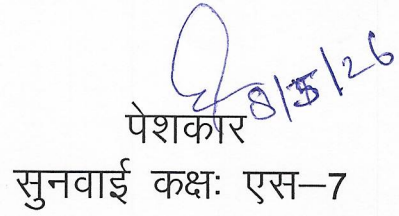 8/5/26
पेशकार
सुनवाई कक्षः एस–7